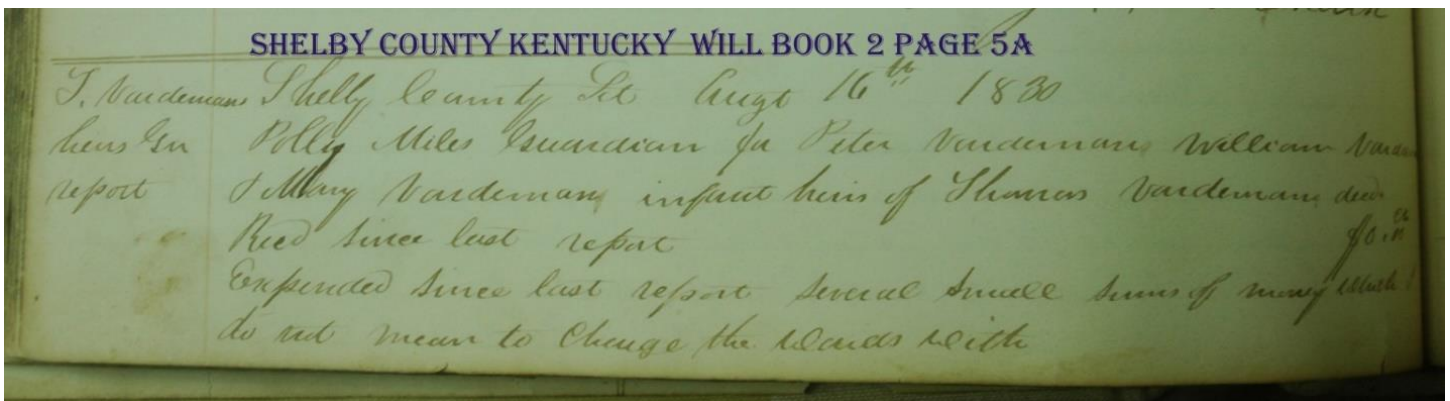 SHELBY COUNTY KENTUCKY WILL BOOK 2 PAGE 5A
T. Vardemans Shelby County Sct Augt 16th 1830
heirs Gn Polly Miles Guardian for Peter Vardeman William
report & Mary Vardeman infant heirs of Thomas Vardeman decd
Recd since last report
Expended since last report several small sums of money which I
do not mean to Charge the Wards with